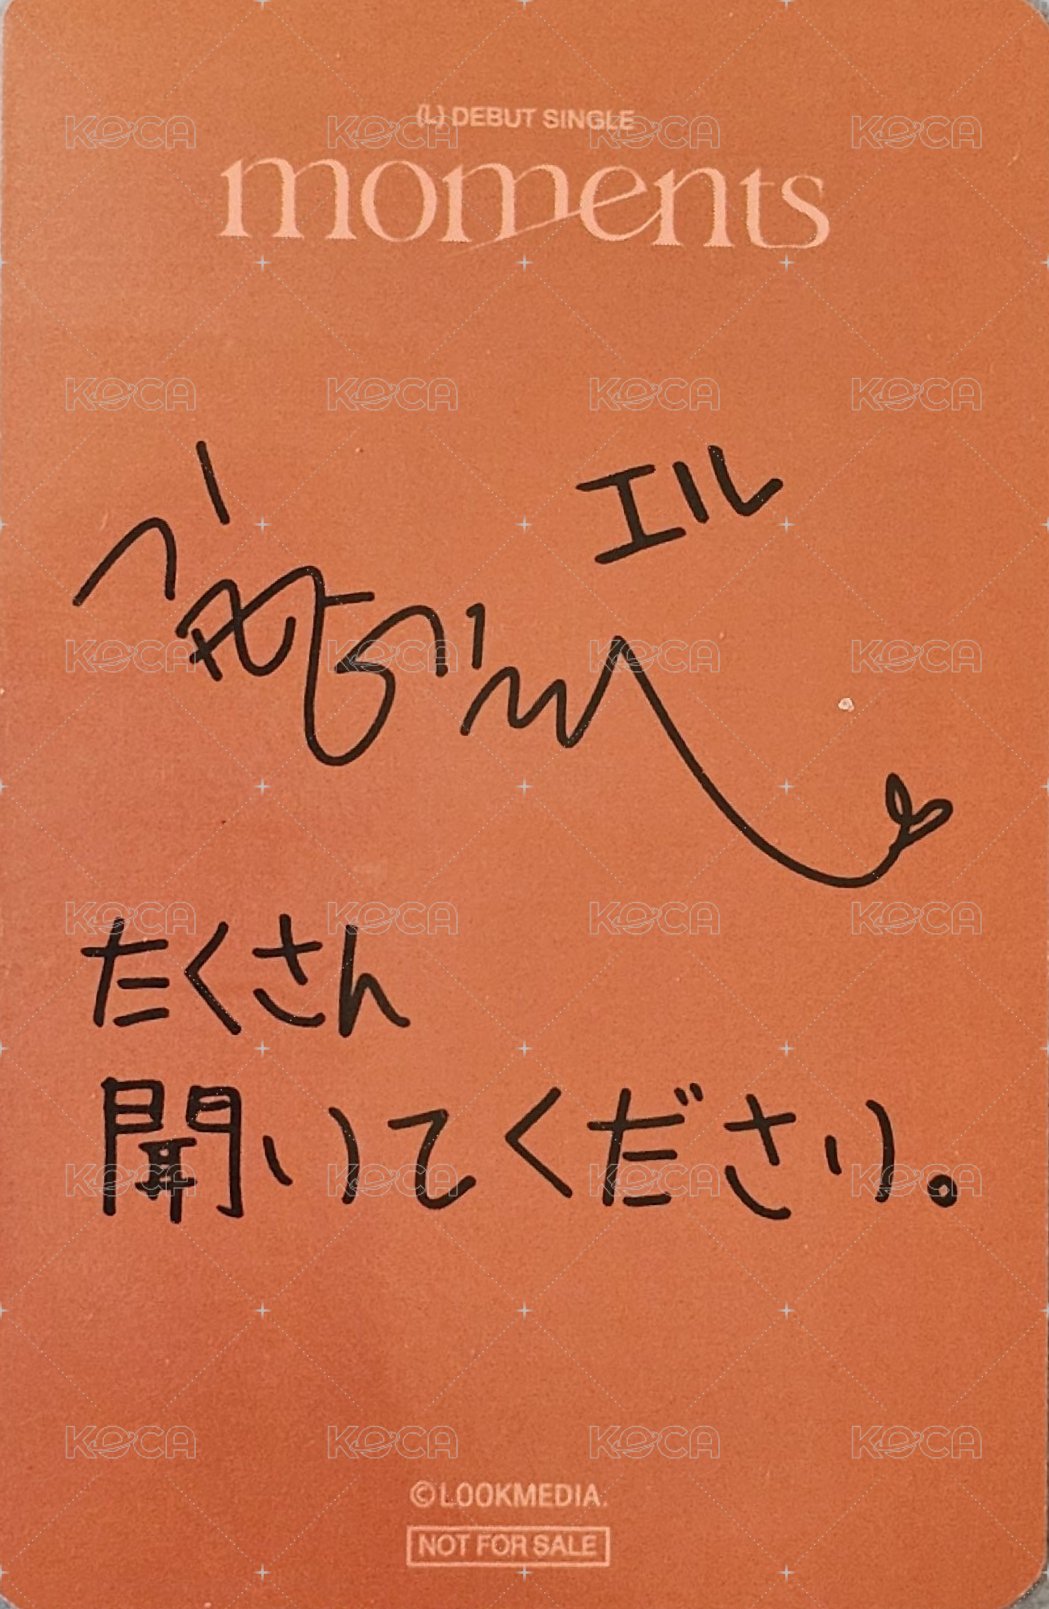 (L) DEBUT SINGLE
moments
エル
たくさん
聞いてください。
©LOOKMEDIA.
NOT FOR SALE
KOCA